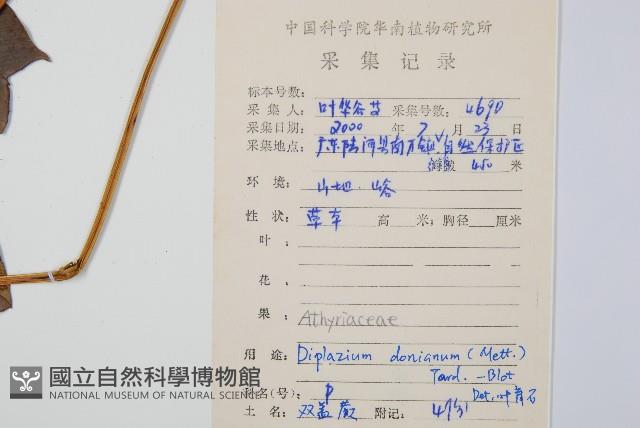 中国科学院华南植物研究所
采集记录
标本号数：
采集人：叶华谷 采集号数：4690
采集日期：2000 年 7 月 23 日
采集地点：广东陆河县南万 自然保护区
海拔 450 米
环境：山地·峪
性状：草本 高 米；胸径 厘米
叶：
花：
果：Athyriaceae
用途：Diplazium donianum (Mett.)
Tard. -Blot
科名(号)：P Det.
土名：双盖蕨 附记：
國立自然科學博物館
NATIONAL MUSEUM OF NATURAL SCIENCE